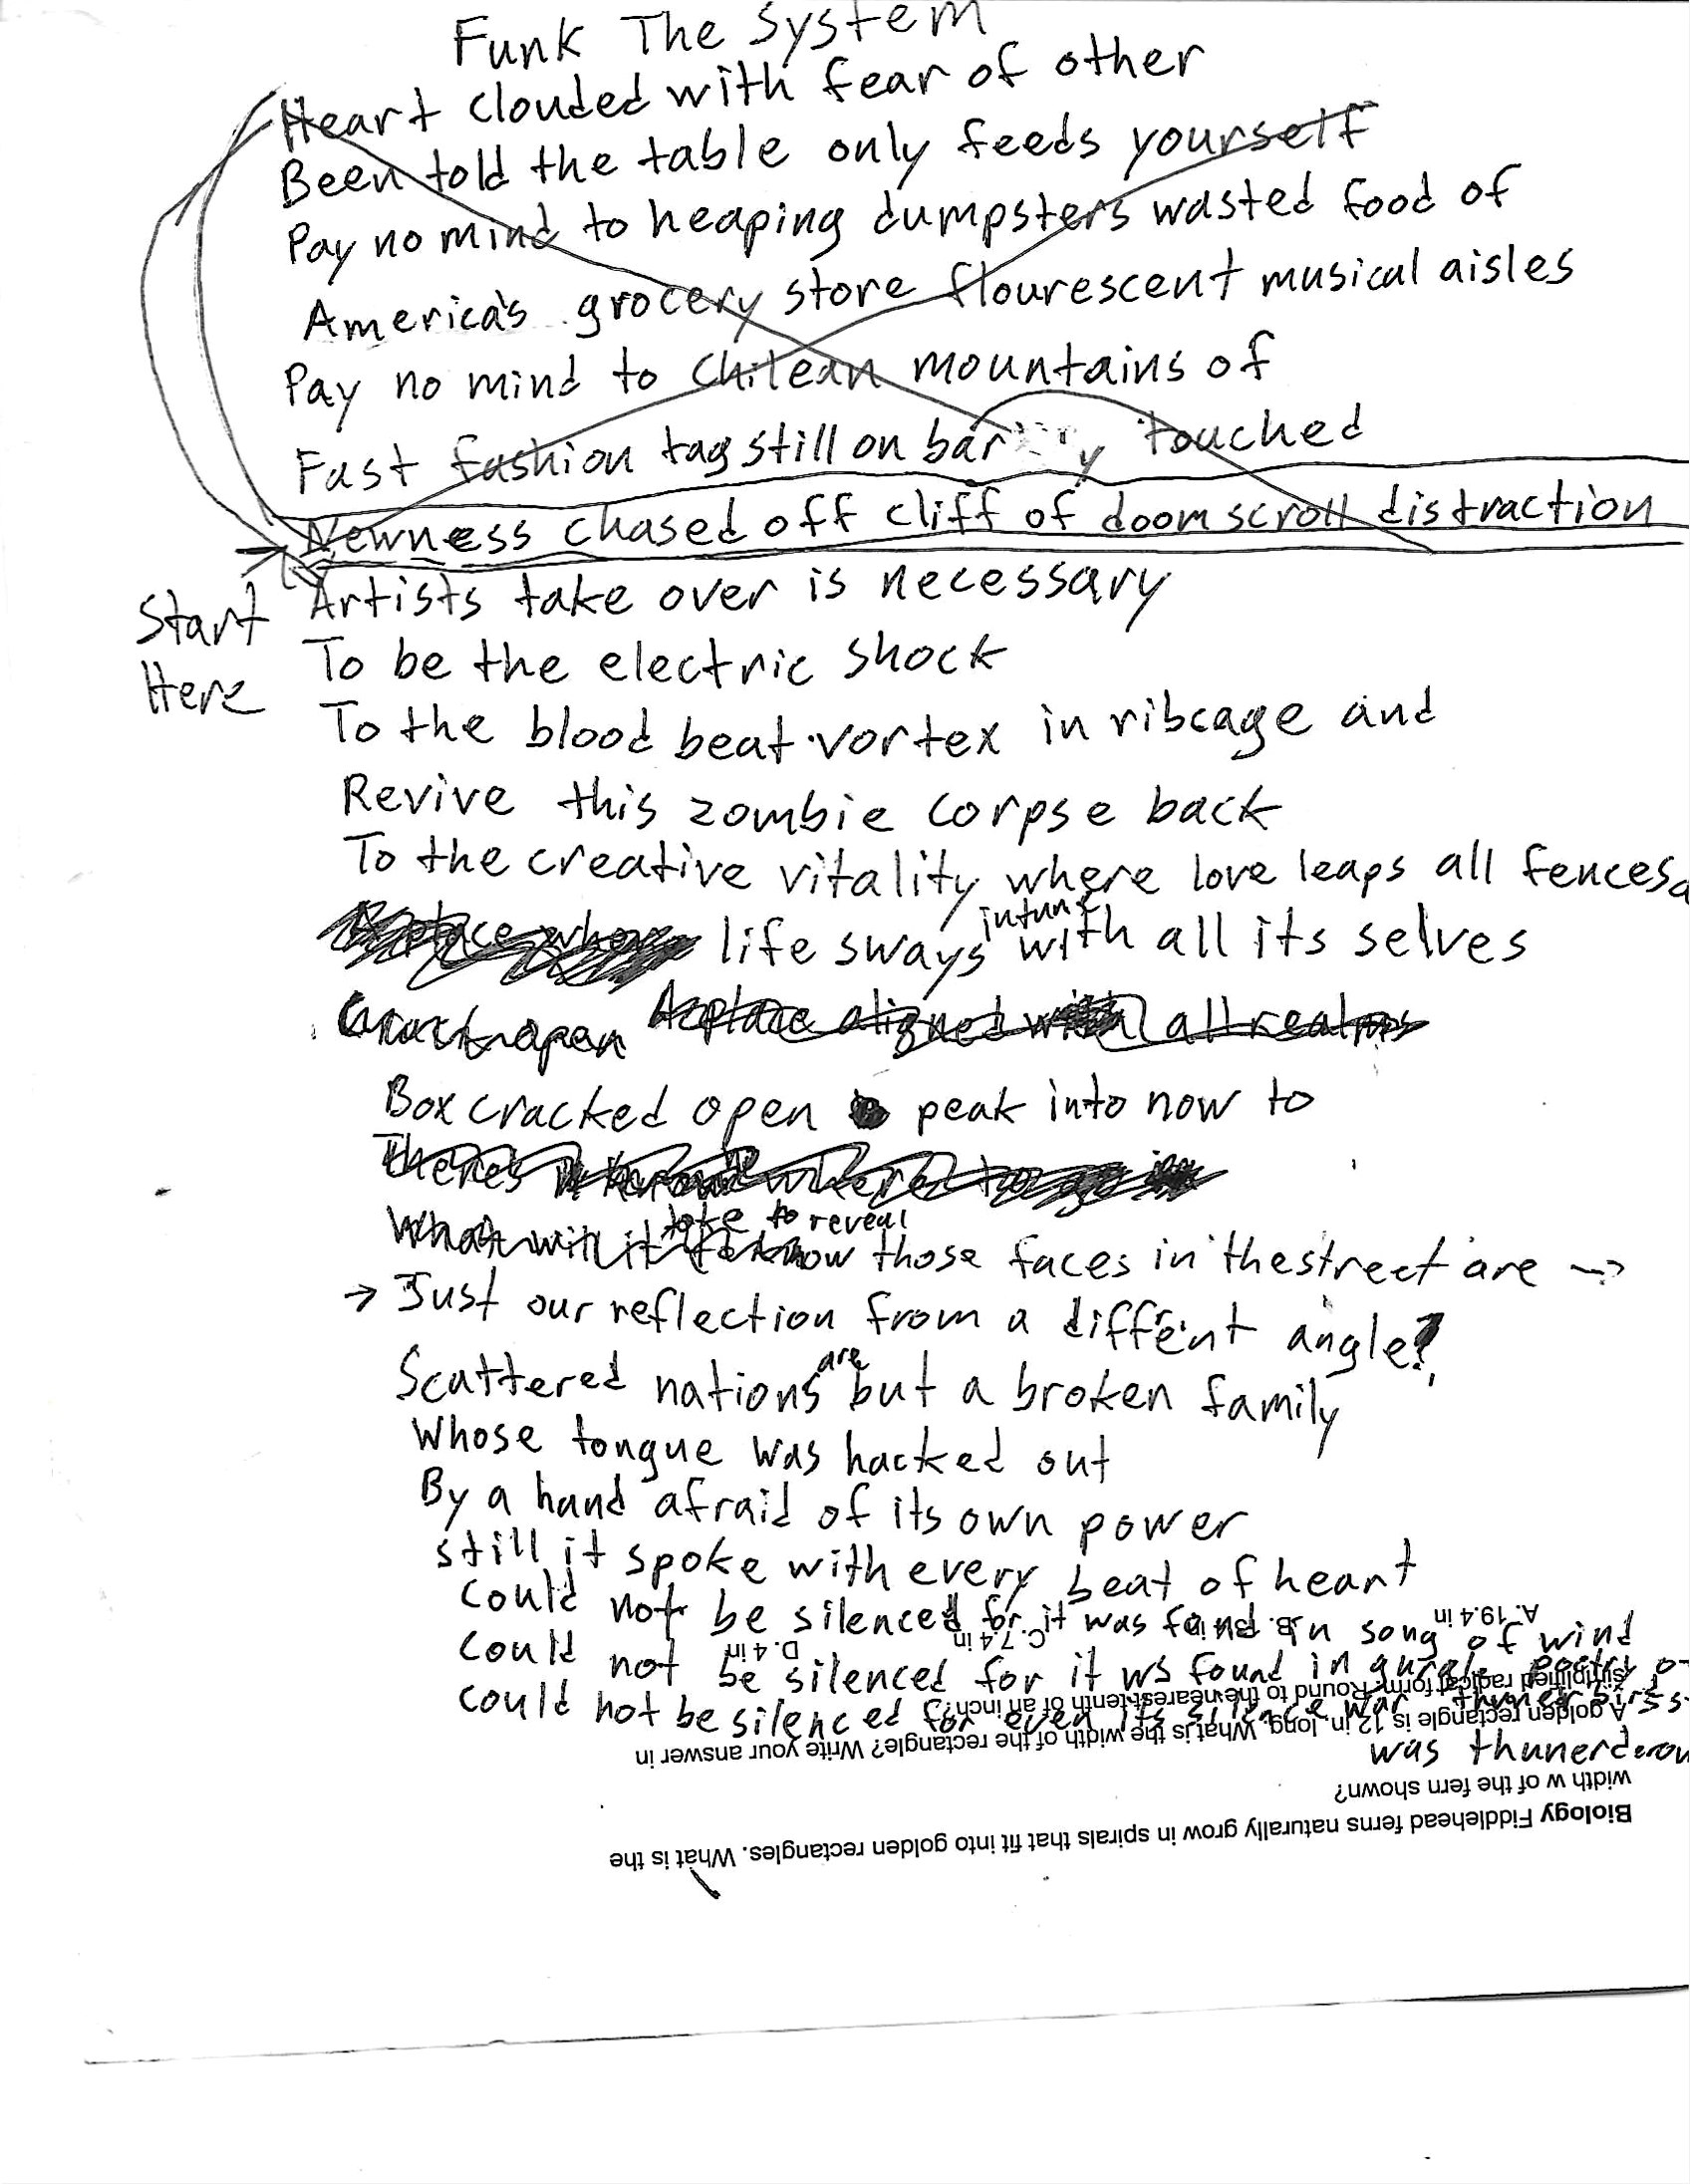 Funk The System
Heart clouded with fear of other
Been told the table only feeds yourself
Pay no mind to heaping dumpsters wasted food of
America's grocery store flourescent musical aisles
Pay no mind to Chilean mountains of
Fast fashion tag still on touched
Newness chased off cliff of doomscroll distraction
Start Here
Artists take over is necessary
To be the electric shock
To the blood beat vortex in ribcage and
Revive this zombie corpse back
To the creative vitality where love leaps all fences
life sways intune with all its selves
Box cracked open peak into now to
take to reveal
What will it know those faces in the street are →
→ Just our reflection from a different angle?
Scattered nations are but a broken family
Whose tongue was hacked out
By a hand afraid of its own power
still it spoke with every beat of heart
could not be silenced for it was found in song of wind
could not be silenced for it ws found in gurgle poetry
could not be silenced for even its silence
was
A. 19.4 in
C. 7.4 in
D. 4 in
simplified radical form. Round to the nearest tenth of an inch?
A golden rectangle is 12 in. long. What is the width of the rectangle? Write your answer in
width w of the fern shown?
Biology Fiddlehead ferns naturally grow in spirals that fit into golden rectangles. What is the